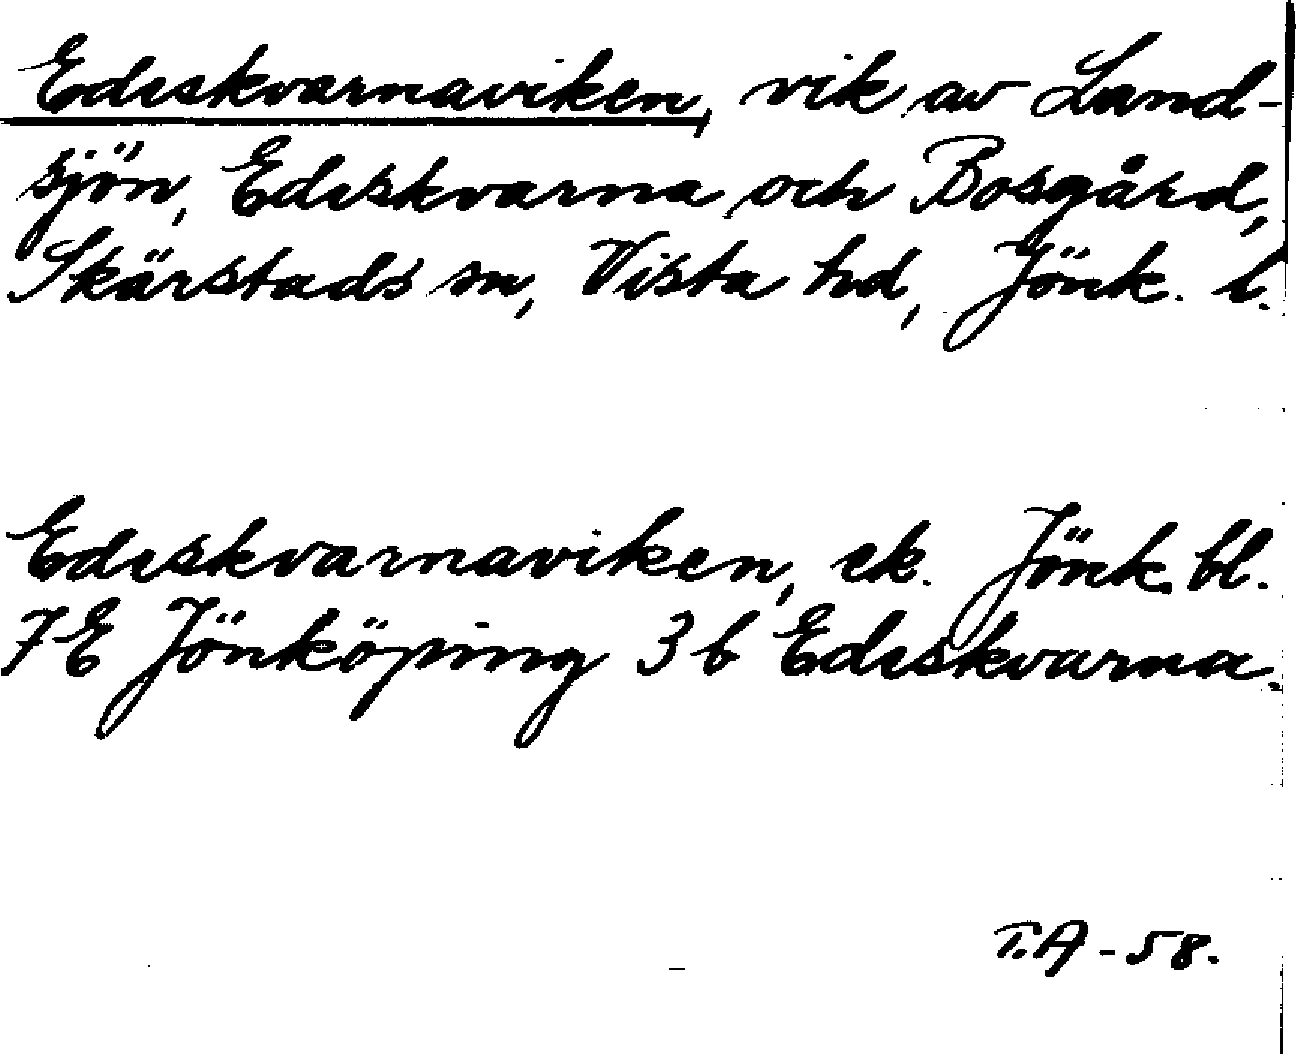 Edeskvarnaviken, vik av Land-
sjön, Edeskvarna och Bosgård,
Skärstads sn, Vista hd, Jönk. l.
Edeskvarnaviken, ek. Jönk. bl.
7E Jönköping 3b Edeskvarna.
T.A - 58.